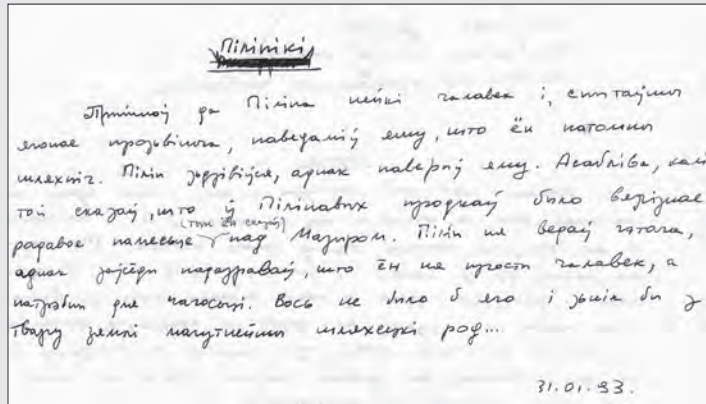 Піліпікі
Прыйшоў да Піліпа нейкі чалавек і, спытаўшы
ягонае прозьвішча, паведаміў яму, што ён патомны
шляхціч. Піліп зьдзівіўся, аднак паверыў яму. Асабліва, калі
той сказаў, што ў Піліпавых продкаў было вялізнае
радавое памесьце (так ён сказаў) над Мазыром. Піліп не верыў гэтага,
аднак заўсёды падазраваў, што ён не просты чалавек, а
патрэбны для чагосьці. Вось не было б яго і зьнік бы з
твару зямлі магутнейшы шляхецкі род...
31.01.93.